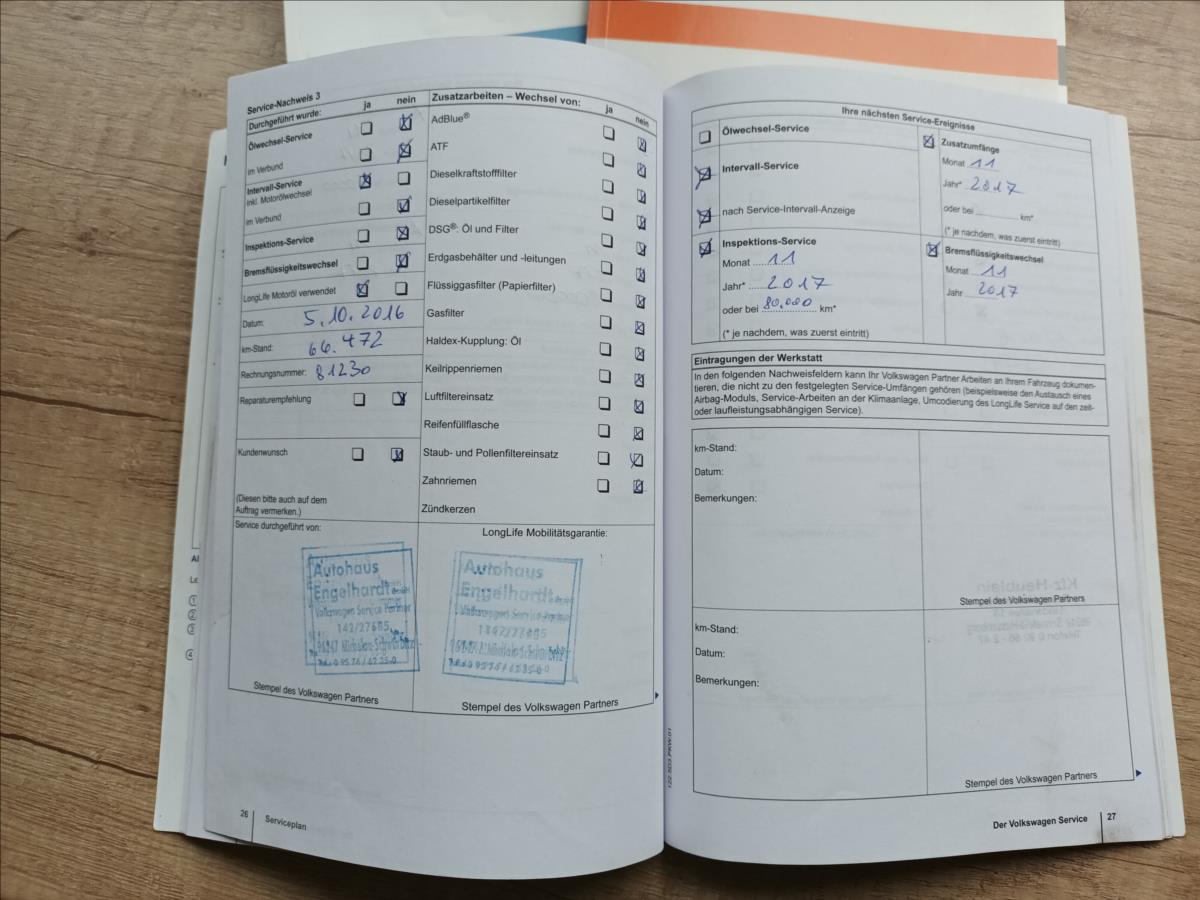 Service-Nachweis 3
Durchgeführt wurde: ja nein
Ölwechsel-Service
im Verbund
Intervall-Service
inkl. Motorölwechsel
im Verbund
Inspektions-Service
Bremsflüssigkeitswechsel
LongLife Motoröl verwendet
Datum: 5.10.2016
km-Stand: 66.472
Rechnungsnummer: 81230
Reparaturempfehlung
Kundenwunsch
(Diesen bitte auch auf dem
Auftrag vermerken.)
Service durchgeführt von:
Autohaus
Engelhardt GmbH
Volkswagen Service Partner
142/27685
Stempel des Volkswagen Partners
Zusatzarbeiten – Wechsel von: ja nein
AdBlue®
ATF
Dieselkraftstofffilter
Dieselpartikelfilter
DSG®: Öl und Filter
Erdgasbehälter und -leitungen
Flüssiggasfilter (Papierfilter)
Gasfilter
Haldex-Kupplung: Öl
Keilrippenriemen
Luftfiltereinsatz
Reifenfüllflasche
Staub- und Pollenfiltereinsatz
Zahnriemen
Zündkerzen
LongLife Mobilitätsgarantie:
Autohaus
Engelhardt
Volkswagen Service Partner
Stempel des Volkswagen Partners
26 Serviceplan
Ihre nächsten Service-Ereignisse
Ölwechsel-Service
Intervall-Service
nach Service-Intervall-Anzeige
Inspektions-Service
Monat 11
Jahr* 2017
oder bei 80.000 km*
(* je nachdem, was zuerst eintritt)
Zusatzumfänge
Monat 11
Jahr* 2017
oder bei km*
(* je nachdem, was zuerst eintritt)
Bremsflüssigkeitswechsel
Monat 11
Jahr 2017
Eintragungen der Werkstatt
In den folgenden Nachweisfeldern kann Ihr Volkswagen Partner Arbeiten an Ihrem Fahrzeug dokumen-
tieren, die nicht zu den festgelegten Service-Umfängen gehören (beispielsweise den Austausch eines
Airbag-Moduls, Service-Arbeiten an der Klimaanlage, Umcodierung des LongLife Service auf den zeit-
oder laufleistungsabhängigen Service).
km-Stand:
Datum:
Bemerkungen:
Stempel des Volkswagen Partners
km-Stand:
Datum:
Bemerkungen:
Stempel des Volkswagen Partners
Der Volkswagen Service 27